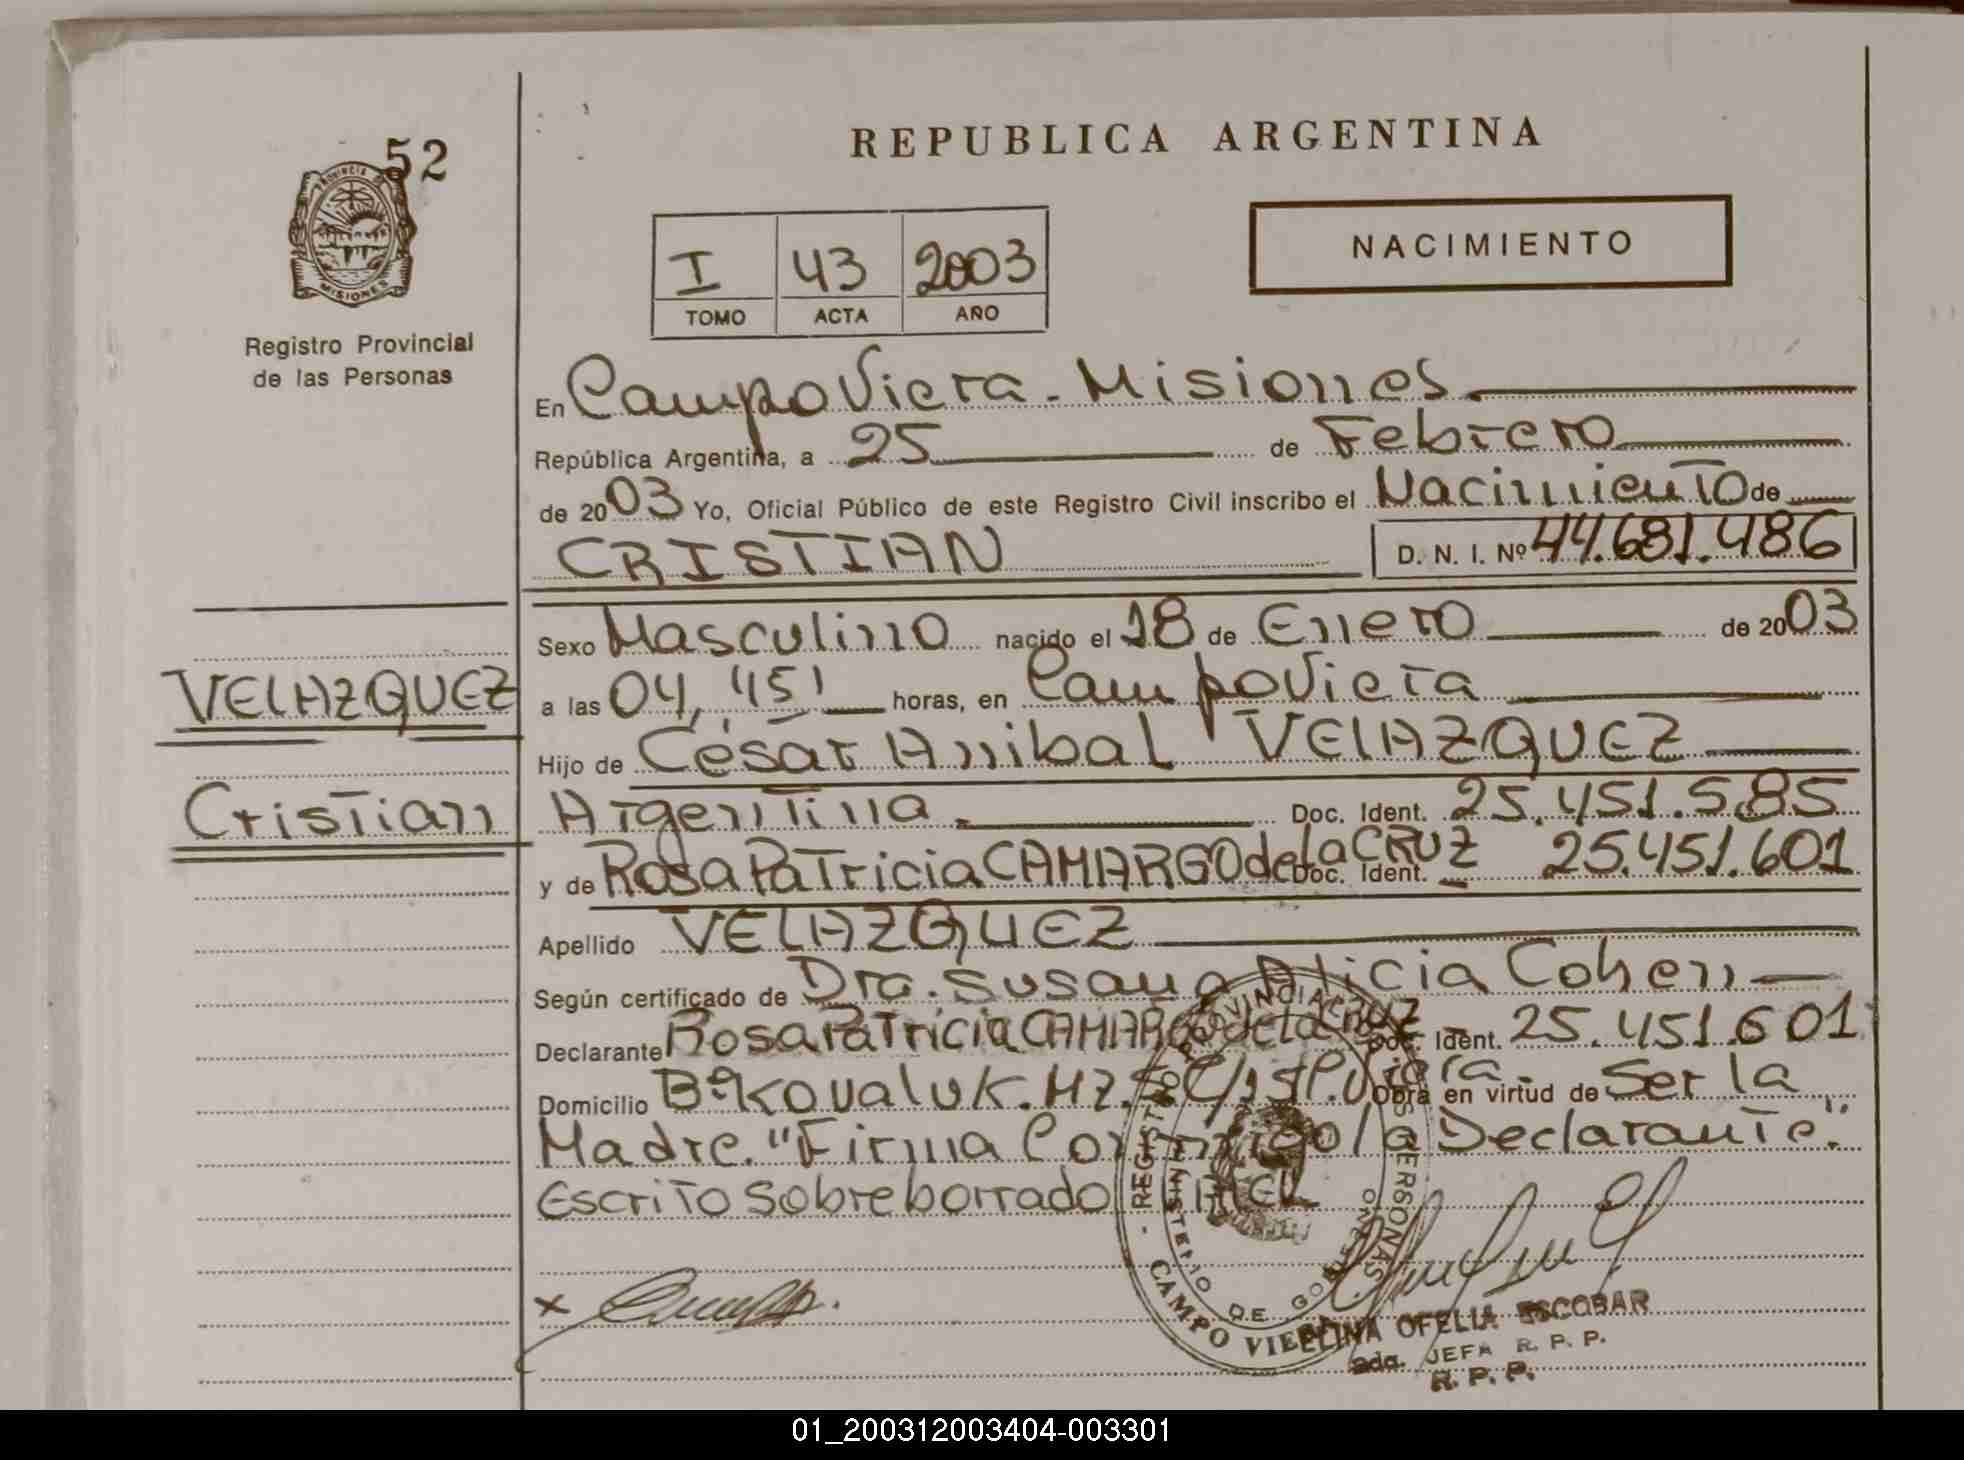 52
PROVINCIA DE
MISIONES
Registro Provincial
de las Personas
REPUBLICA ARGENTINA
I 43 2003
TOMO ACTA AÑO
NACIMIENTO
En Campo Viera - Misiones
República Argentina, a 25 de Febrero
de 2003 Yo, Oficial Público de este Registro Civil inscribo el Nacimiento de
CRISTIAN D. N. I. Nº 44.681.486
Sexo Masculino nacido el 18 de Enero de 2003
VELAZQUEZ
a las 04,45' horas, en Campo Viera
Hijo de César Anibal VELAZQUEZ
Cristian
Argentina. Doc. Ident. 25.451.585
y de Rosa Patricia CAMARGO de la CRUZ Doc. Ident. 25.451.601
Apellido VELAZQUEZ
Según certificado de Dra. Susana Alicia Cohen
Declarante Rosa Patricia CAMARGO de la CRUZ Doc. Ident. 25.451.601
Domicilio Bº Kovaluk. Mz. Viera. Obra en virtud de Ser la
Madre. "Firma Conmigo la Declarante".
Escrito Sobreborrado
REGISTRO PROVINCIAL PERSONAS
MINISTERIO DE GOBIERNO
CAMPO VIERA
ELINA OFELIA ESCOBAR
2da. JEFA R. P. P.
R. P. P.
01_200312003404-003301